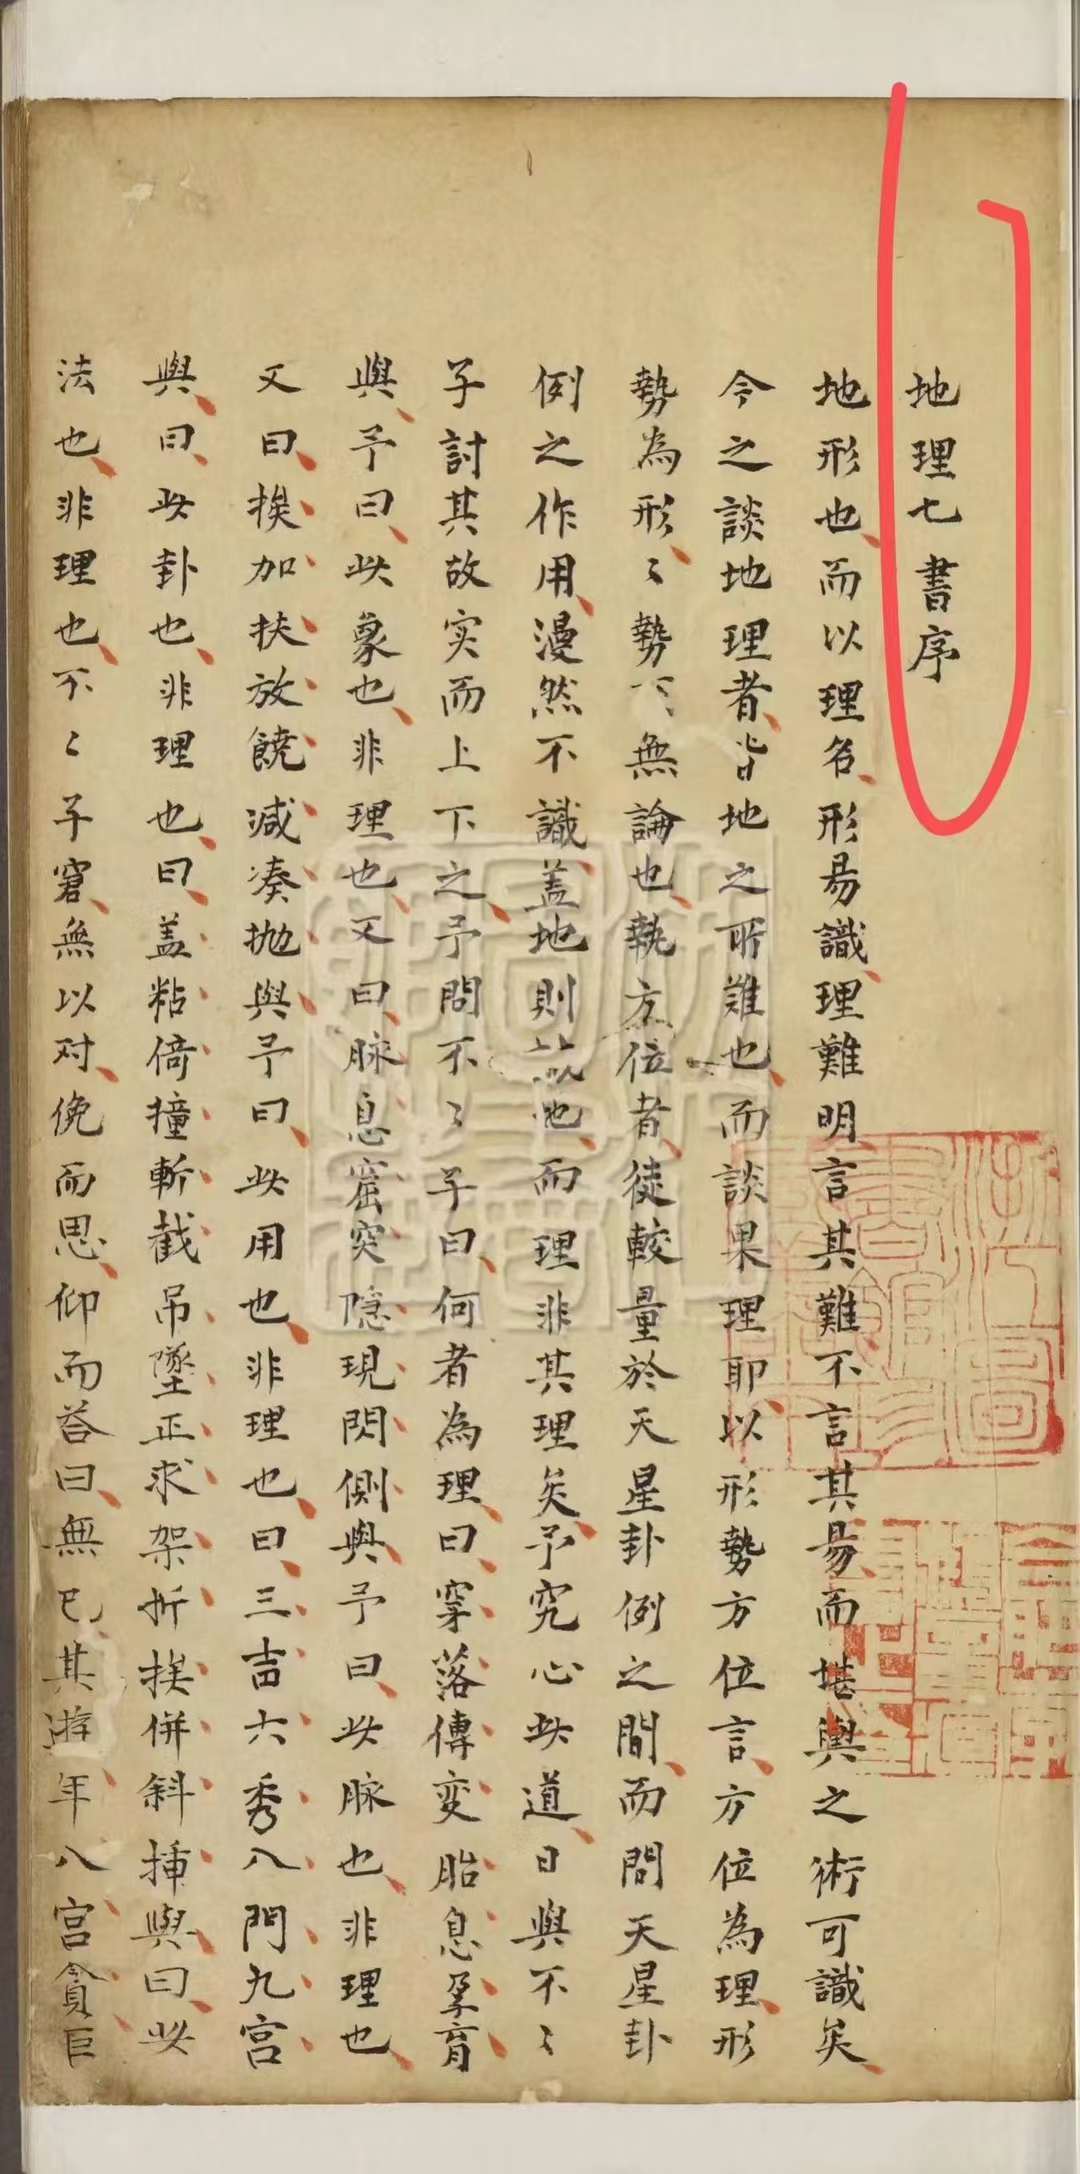 地理七書序
地形也而以理名形易識理難明言其難不言其易而堪輿之術可識矣
今之談地理者皆地之所難也而談果理耶以形勢方位言方位為理形
勢為形〻勢下無論也執方位者徒較量於天星卦例之間而問天星卦
例之作用漫然不識盖地則地而理非其理矣予究心此道日與不〻
子討其故实而上下之予問不〻子曰何者為理曰穿落傳变胎息孕育
與予曰此象也非理也又曰脉息窟突隐現閃側與予曰此脉也非理也
又曰挨加扶放饒减凑抛與予曰此用也非理也曰三吉六秀八門九宫
與曰此卦也非理也曰盖粘倚撞斬截吊墜正求架折挨併斜揷與曰此
法也非理也不〻子窘無以对俛而思仰而荅曰無已其遊年八宫貪巨